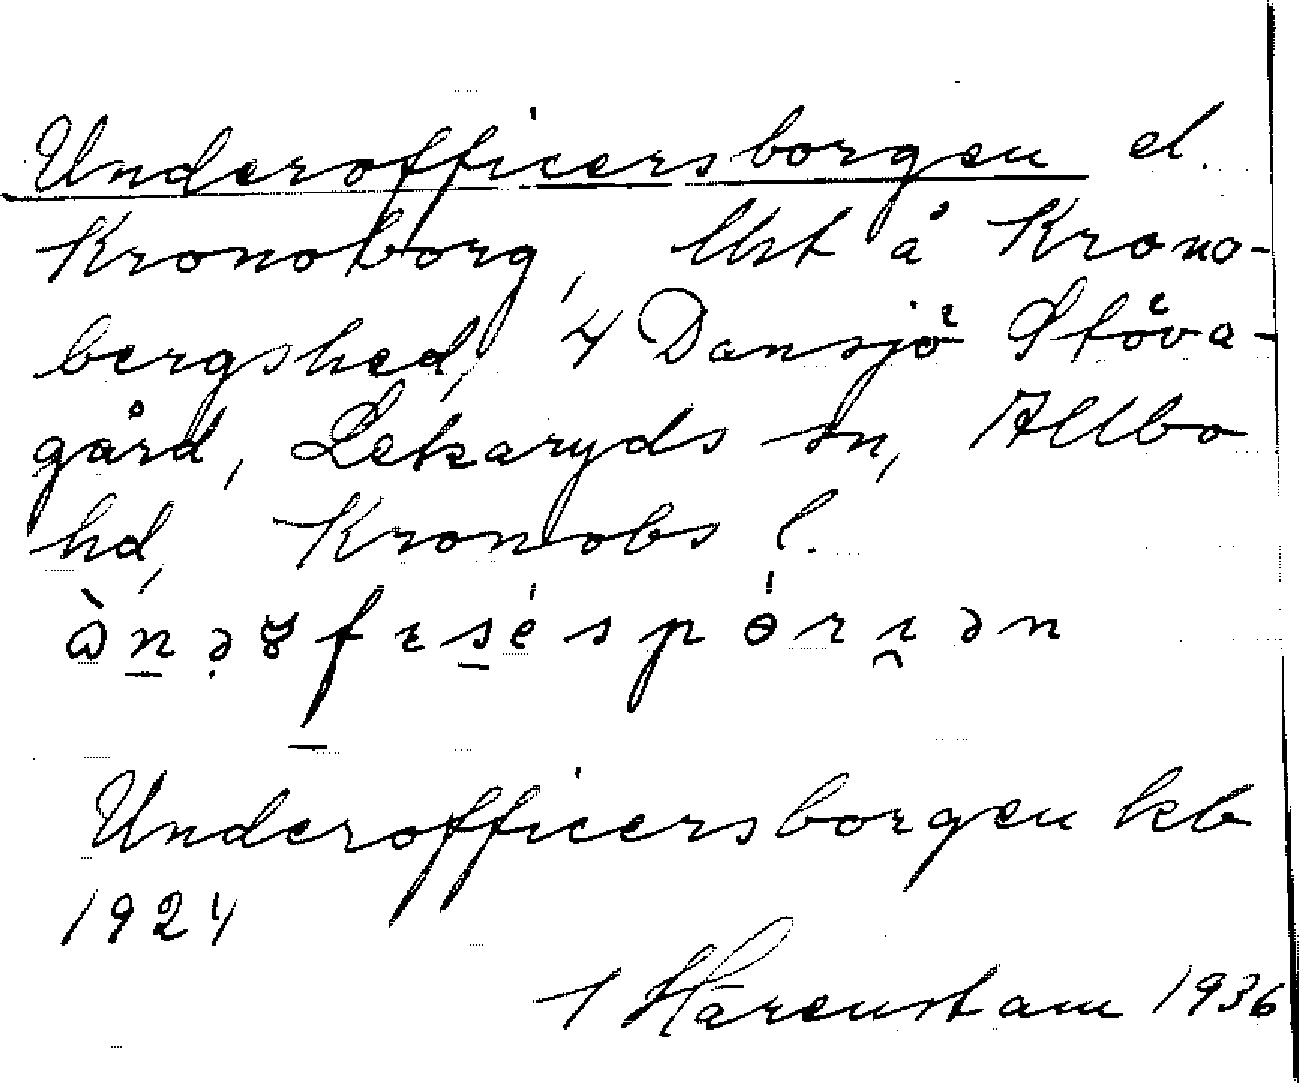 Underofficersborgen el.
Kronoborg, Lht å Krono-
bergshed, 4 Dansjö Stöva-
gård, Lekaryds sn, Allbo
hd, Kronobs l.
Underofficersborgen kb
1924
Härenstam 1936